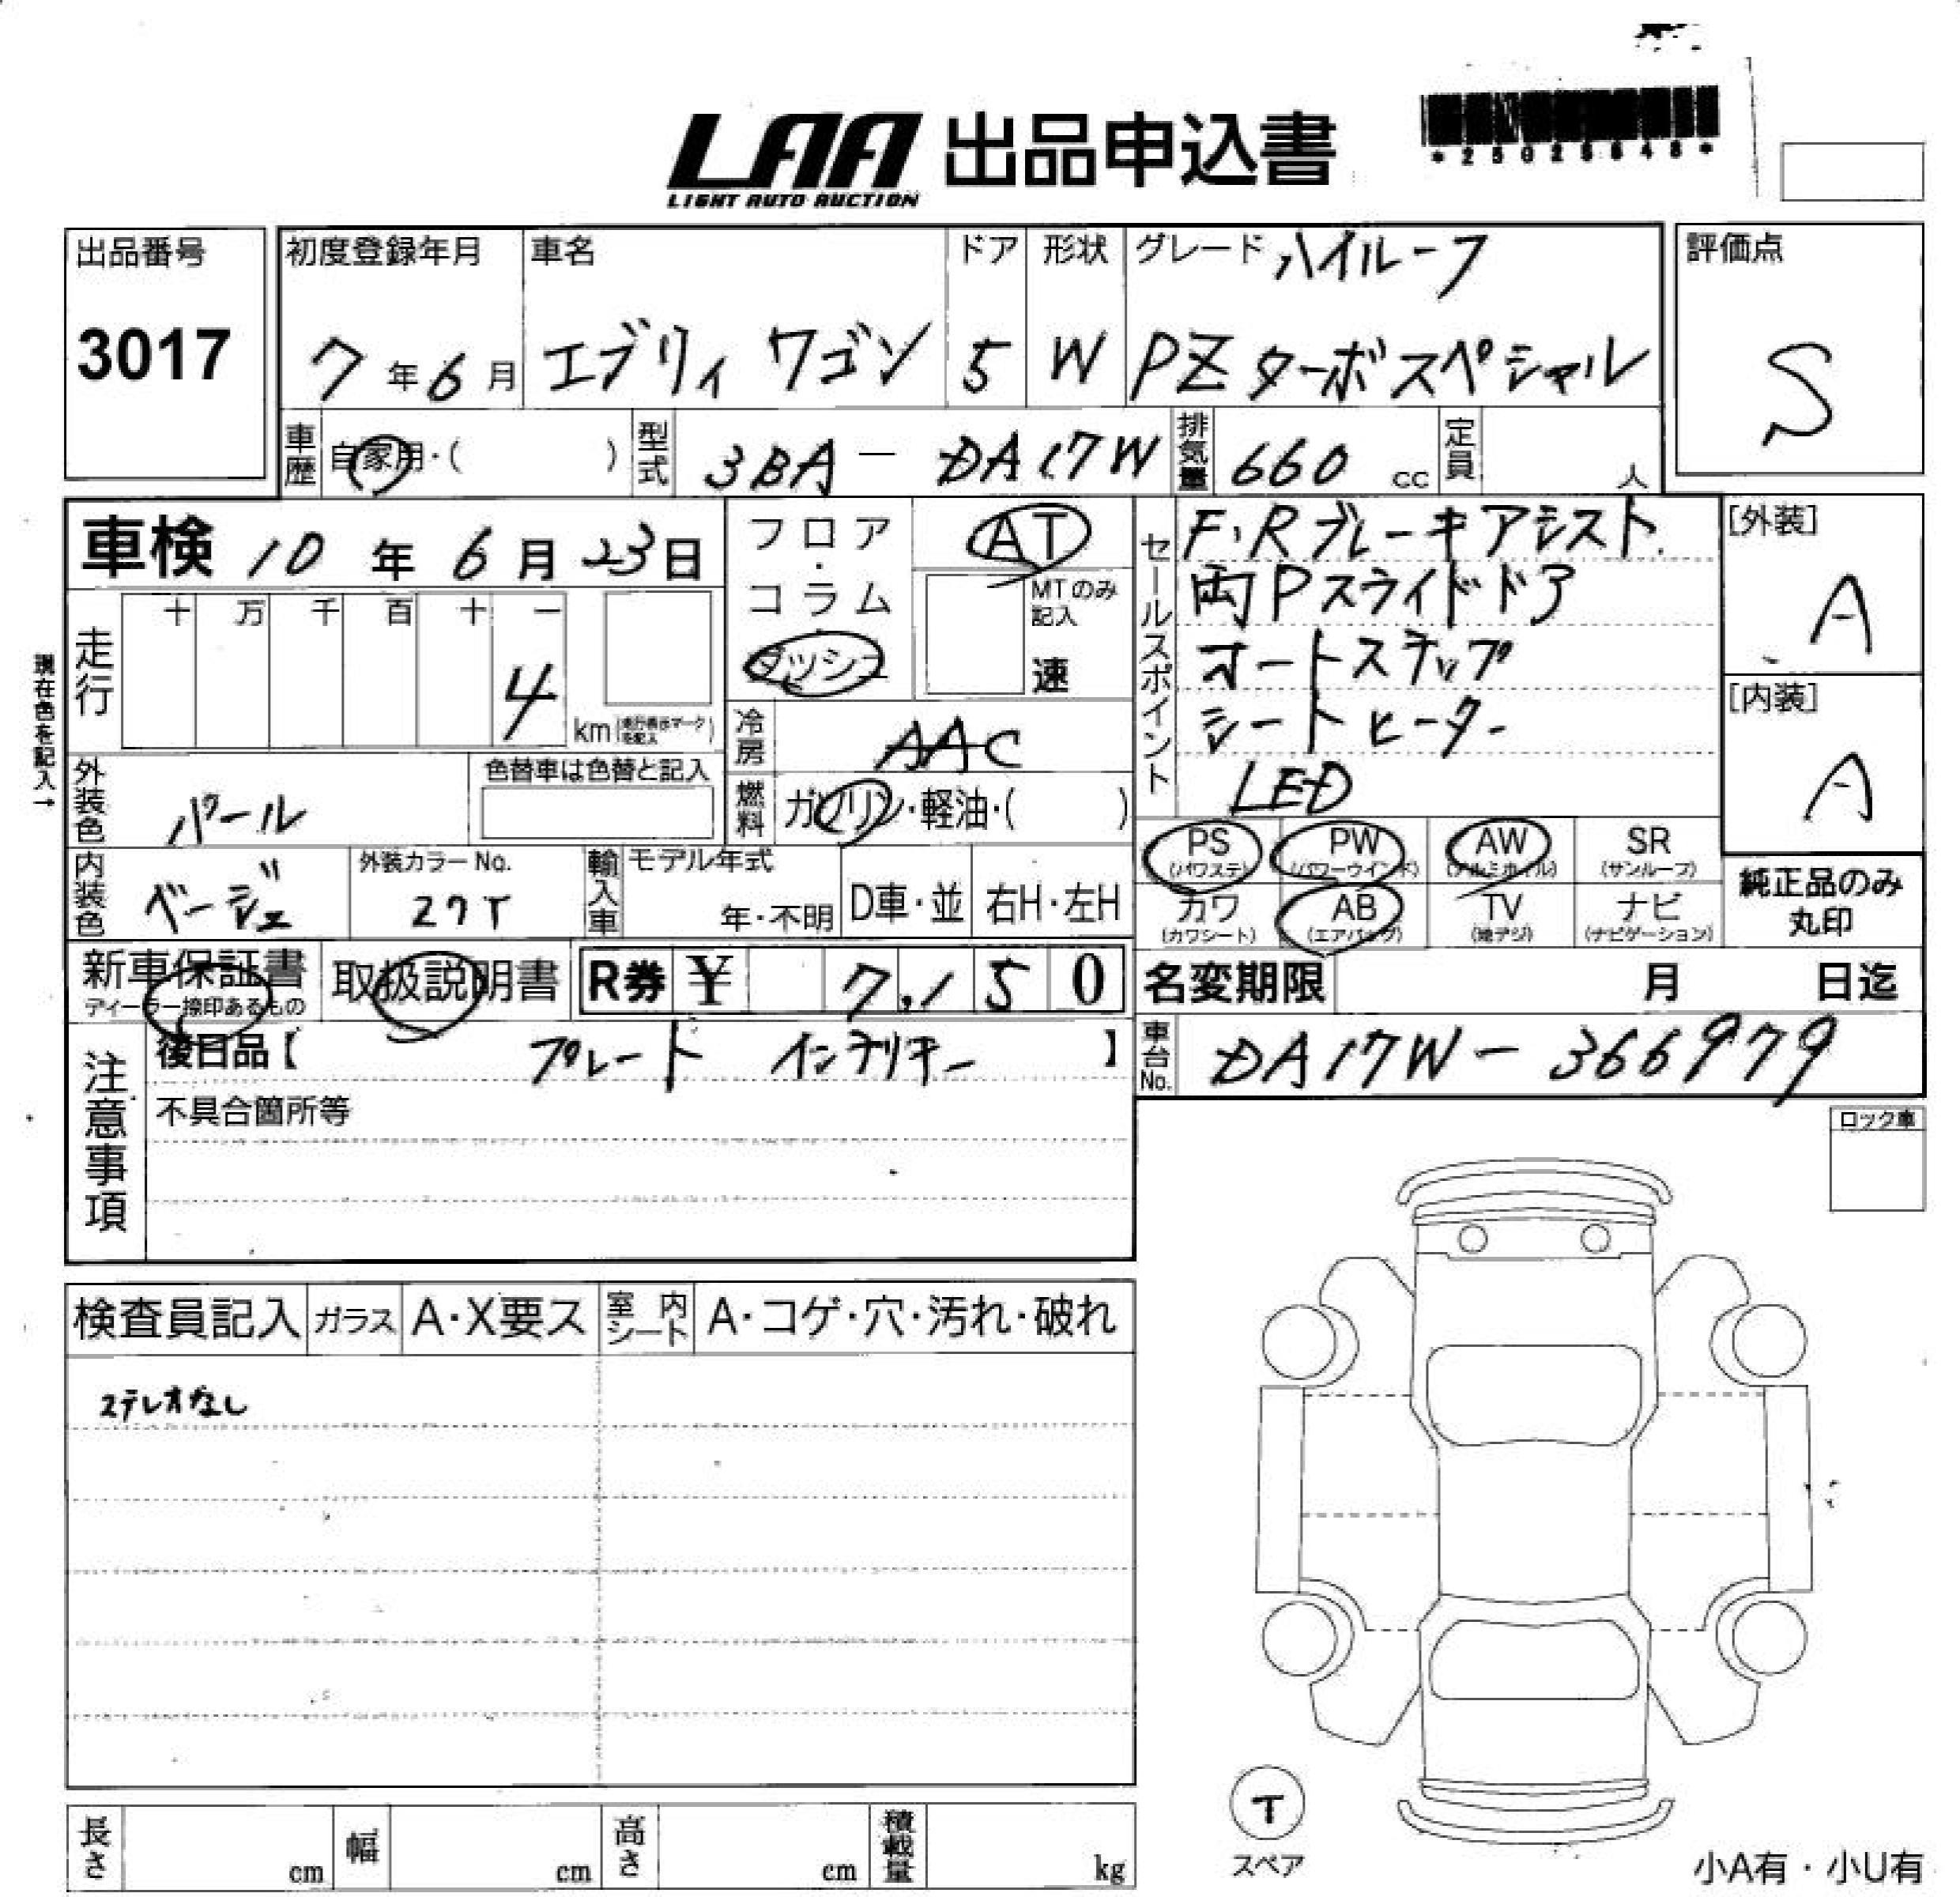 LAA 出品申込書
LIGHT AUTO AUCTION
出品番号
3017
初度登録年月
7年6月
車名
エブリィ ワゴン
ドア
5
形状
W
グレード ハイルーフ
PZ ターボスペシャル
評価点
S
車歴 自家用・( )
型式 3BA-DA17W
排気量 660 cc
定員 人
車検 10年6月23日
フロア・コラム
ダッシュ
AT
MTのみ記入
速
現在色を記入→
走行 十 万 千 百 十 一
4 km
冷房 AAC
外装色 パール
色替車は色替と記入
燃料 ガソリン・軽油・( )
内装色 ベージュ
外装カラーNo.
Z7T
輸入車 モデル年式
年・不明
D車・並
右H・左H
セールスポイント
F・Rブレーキアシスト
両Pスライドドア
オートステップ
シートヒーター
LED
[外装]
A
[内装]
A
PS (パワステ)
PW (パワーウインド)
AW (アルミホイル)
SR (サンルーフ)
カワ (カワシート)
AB (エアバッグ)
TV (地デジ)
ナビ (ナビゲーション)
純正品のみ
丸印
新車保証書
ディーラー捺印あるもの
取扱説明書
R券 ¥ 7,150
名変期限 月 日迄
車台No. DA17W-366979
注意事項
後日品【 プレート インテリキー 】
不具合箇所等
ロック車
検査員記入
ガラス A・X要ス
室内シート A・コゲ・穴・汚れ・破れ
ステレオなし
T
スペア
長さ cm
幅 cm
高さ cm
積載量 kg
小A有・小U有